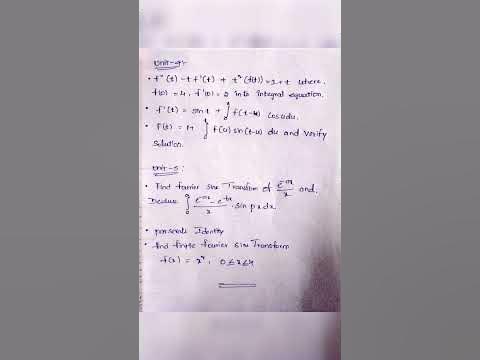 Unit-4:-
• f''(t) - t f'(t) + tⁿ(f(t)) = 1+t where
f(0) = 4, f'(0) = 2 into integral equation.
• f'(t) = sin t + ∫₀ᵗ f(t-u) cos u du.
• f(t) = 1+ ∫₀ᵗ f(u) sin(t-u) du and verify
Solution.
Unit-5:
• Find fourier sine Transform of e^-ax/x and
∫₀ e^-ax - e^-bx/x . sin px dx
• Identity
• find finite fourier sine Transform
f(x) = xⁿ, 0≤x≤4